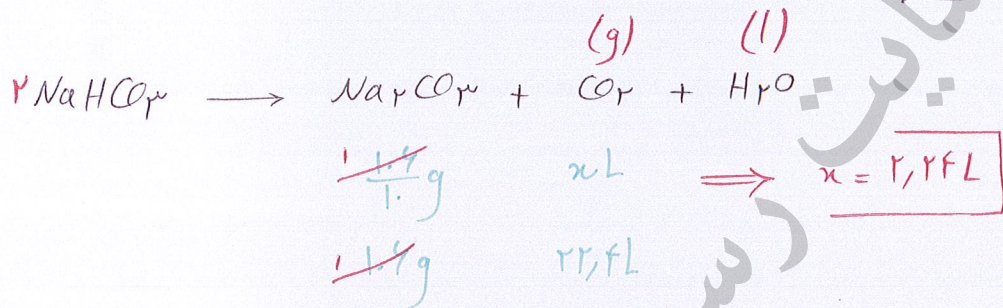 (g) (l)
۲NaHCO۳ ⟶ Na۲CO۳ + CO۲ + H۲O
۱ ۱۰۶/۱۰ g xL ⟹ x = ۲,۲۴L
۱ ۱۰۶g ۲۲,۴L